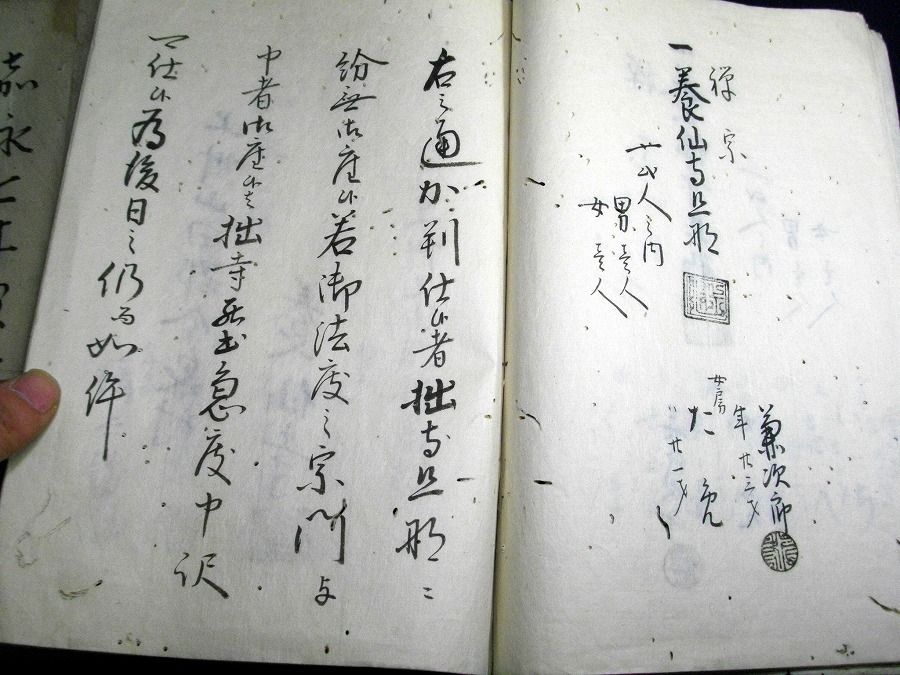 禅宗
一養仙寺旦那
兼次郎
年廿三才
女房
た免
〃廿一才
弐人之内
男壱人
女壱人
右之通加判仕候者拙寺旦那ニ
紛無御座候若御法度之宗門与
申者御座候ハヽ拙寺罷出急度申訳
可仕候為後日之仍而如件
嘉永七年寅